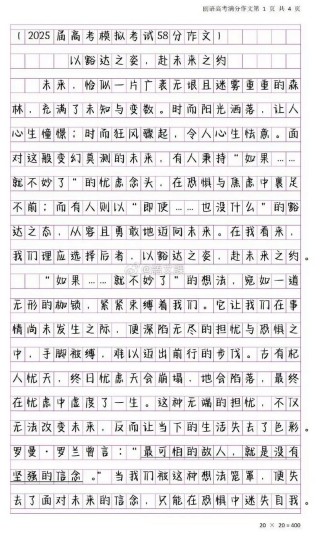 国语高考满分作文第 1 页 共 4 页
(2025届高考模拟考试58分作文)
以豁达之姿，赴未来之约
未来，恰似一片广袤无垠且迷雾重重的森
林，充满了未知与变数。时而阳光洒落，让人
心生憧憬；时而狂风骤起，令人心生怯意。面
对这般变幻莫测的未来，有人秉持“如果……
就不妙了”的忧虑念头，在恐惧与焦虑中裹足
不前；而有人则以“即使……也没什么”的豁
达之态，从容且勇敢地迈向未来。在我看来，
我们理应选择后者，以豁达之姿，赴未来之约。
“如果……就不妙了”的想法，宛如一道
无形的枷锁，紧紧束缚着我们。它让我们在事
情尚未发生之际，便深陷无尽的担忧与恐惧之
中，手脚被缚，难以迈出前行的步伐。古有杞
人忧天，终日忧虑天会崩塌，地会陷落，最终
在忧虑中虚度了一生。这种无端的担忧，不仅
无法改变未来，反而让当下的生活失去了色彩。
罗曼·罗兰曾言：“最可怕的敌人，就是没有
坚强的信念。”当我们被这种想法笼罩，便失
去了面对未来的信念，只能在恐惧中迷失自我。
20 × 20 = 400